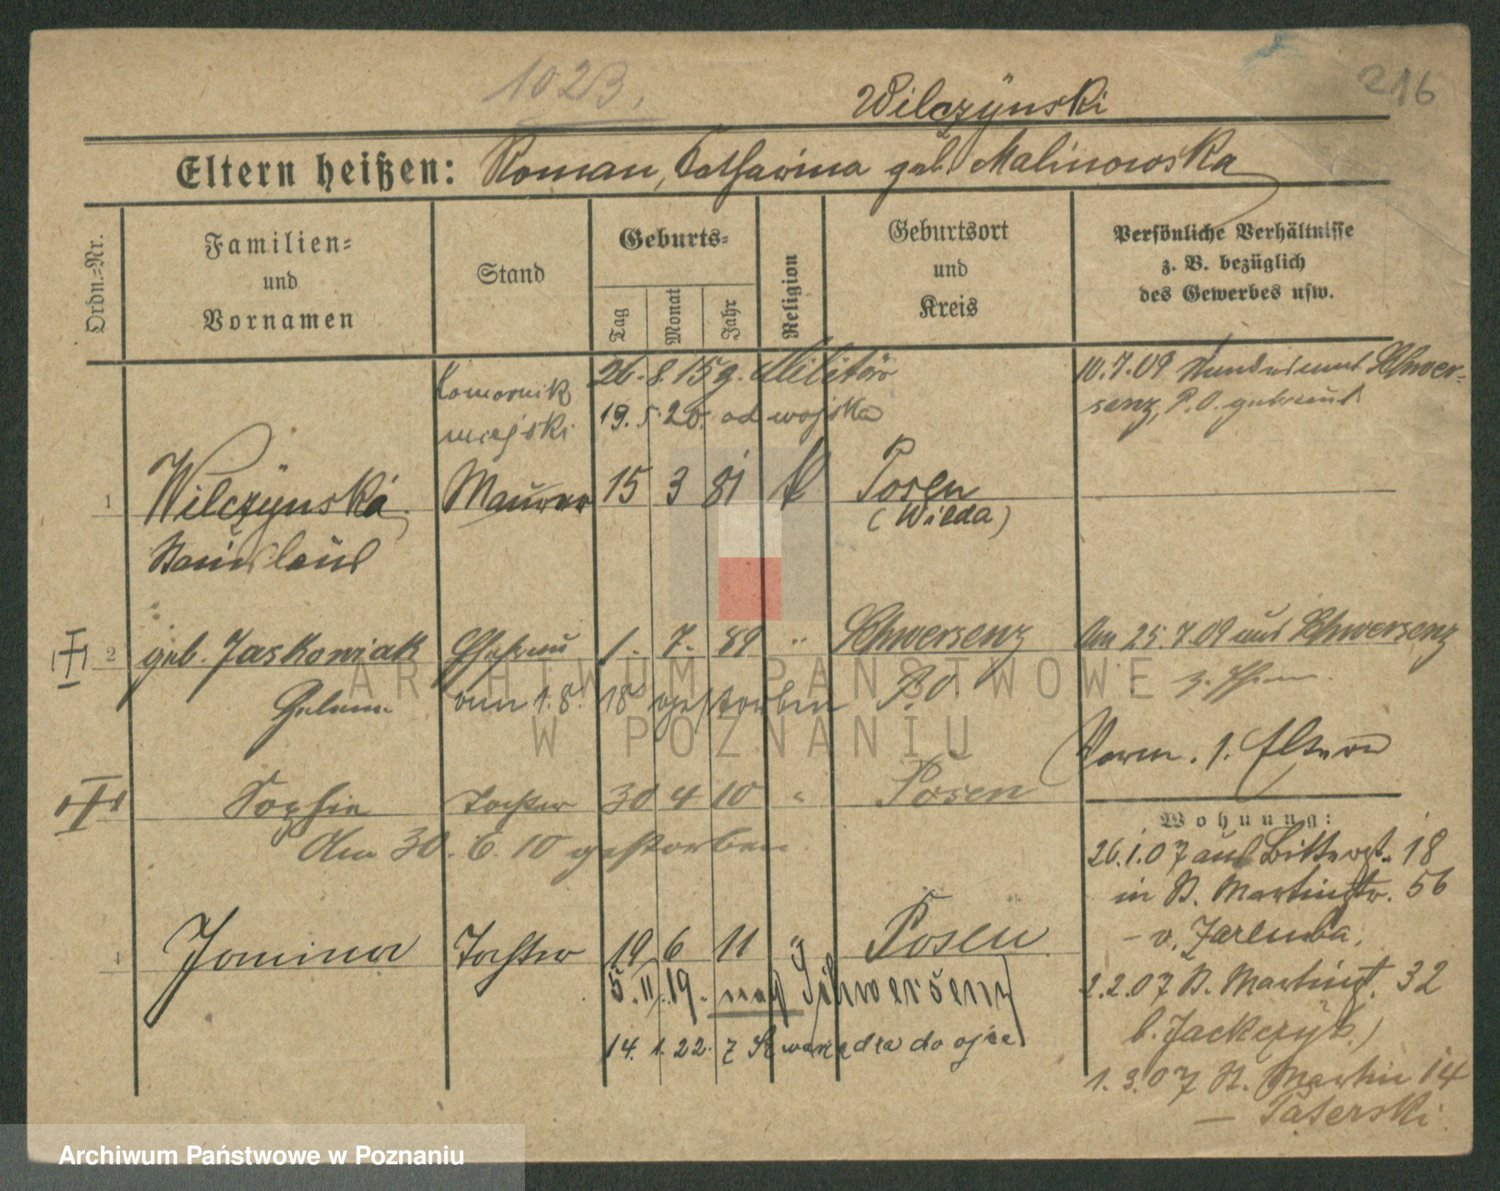 102B.
Wilczÿnski
216
Eltern heißen: Roman, Catharina geb. Malinowska
Ordn.-Nr.
Familien- und Vornamen
Stand
Geburts-
Tag
Monat
Jahr
Religion
Geburtsort und Kreis
Persönliche Verhältnisse
z. B. bezüglich
des Gewerbes usw.
Komornik
miejski
26. 8. 15 z. Militär
19. 5. 20. od wojska
10.7.09 Schwer-
senz, P. O.
1 Wilczÿnski Maurer 15 3 81 k Posen
(Wilda)
Stanislaus
2 geb. Jaskowiak Ehefrau 1. 7. 89 " Schwersenz
Am 25.7.09 aus Schwersenz
Helene am 1.8. 18 gestorben P.O
z. Ehem.
Verm. s. Eltern
Sophie Tochter 30 4 10 " Posen
Am 30. 6. 10 gestorben.
Wohnung:
26.1.07 aus Bitterst. 18
in St. Martinstr. 56
- v. Zaremba.
4 Janina Tochter 19 6 11 " Posen
5. II. 19. nach Schwersenz
2.2.07 St. Martinst. 32
14. 1. 22. z Swarzędza do ojca
1. 3. 07 St. Martin 14
- Paterski
ARCHIWUM PAŃSTWOWE
W POZNANIU
Archiwum Państwowe w Poznaniu